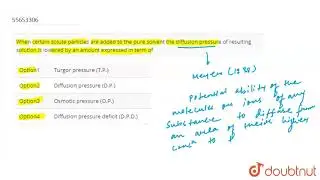 55653306
When certain solute particles are added to the pure solvent the diffusion pressure of resulting
solution is lowered by an amount expressed in term of
Option1 Turgor pressure (T.P.)
Option2 Diffusion pressure (D.P.)
Option3 Osmotic pressure (O.P.)
Option4 Diffusion pressure deficit (D.P.D.)
Meyer (1938)
potential ability of the
molecules or ions of any
substance to diffuse from
an area of their higher
conc to
doubtnut